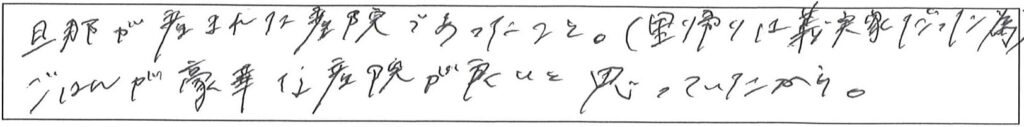 旦那が産まれた産院であったこと。(里帰りは義実家だった為)
ごはんが豪華な産院が良いと思っていたから。